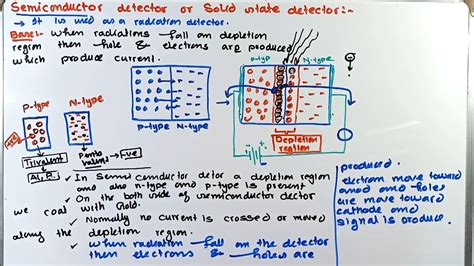 Semiconductor detector or Solid state detector:-
→ It is used as a radiation detector.
Base:- when radiations fall on depletion
region then hole & electrons are produced
which produce current.
P-type N-type
P-type N-type
P-type N-type
Trivalent
Al, B
Penta
valent
-ve
Depletion
region
→ In semi conductor detor a depletion region
and also n-type and p-type is present
→ On the both side of semiconductor dector
we coat with Gold.
→ Normally no current is crossed or moved
along the depletion region.
→ when radiation fall on the detector
then electrons & holes are
produced.
electron move toward
anod and holes
are move toward
cathode and
signal is produce.